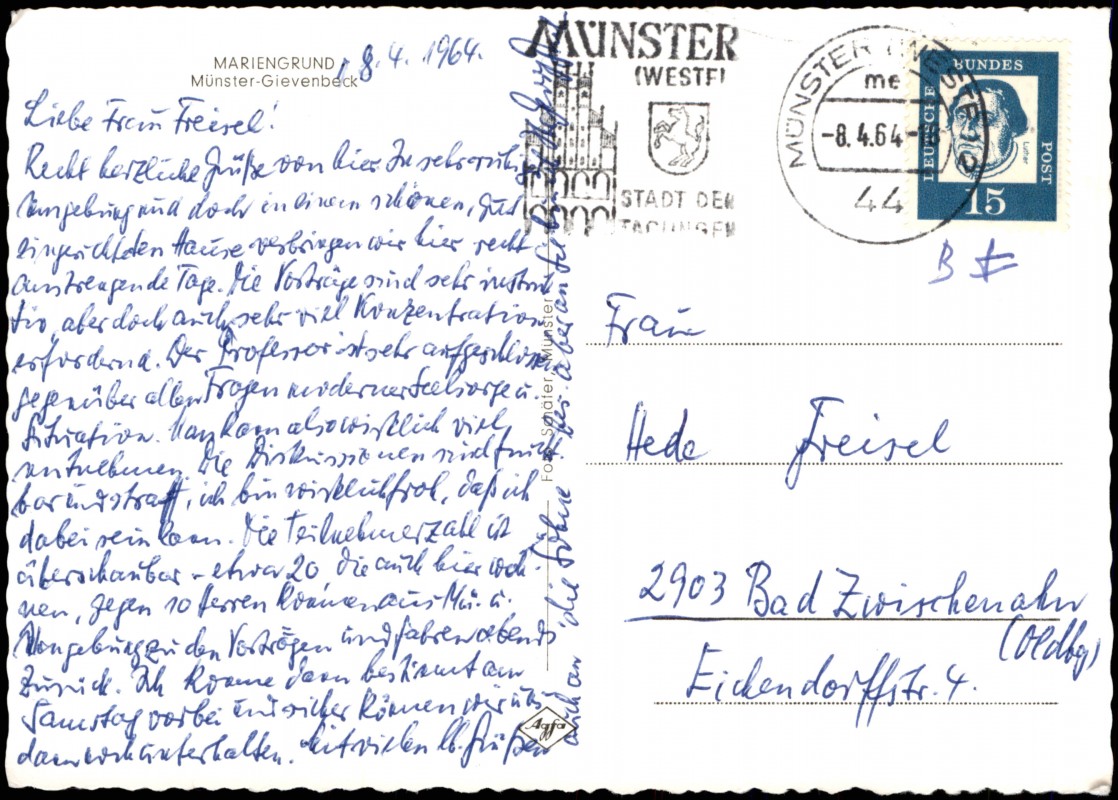 MARIENGRUND
Münster-Gievenbeck
, 8.4.1964.
Liebe Frau Freisel!
Recht herzliche Grüße von hier. In sehr ruh.
Umgebung und doch in einem schönen, gut
eingerichteten Hause verbringen wir hier recht
anstrengende Tage. Die Vorträge sind sehr instruk
tiv, aber doch auch sehr viel Konzentration
erfordernd. Der Professor ist sehr aufgeschlossen
gegenüber allen Fragen moderner Seelsorge u.
Situation. Man kann also wirklich viel
entnehmen. Die Diskussionen sind frucht
bar und straff, ich bin wirklich froh, daß ich
dabei sein kann. Die Teilnehmerzahl ist
überschaubar - etwa 20, die auch hier woh-
nen, gegen 10 Herren kommen aus Mü. u.
Umgebung zu den Vorträgen und fahren abends
zurück. Ich komme dann bestimmt am
Samstag vorbei und sicher können wir uns
dann noch unterhalten. Mit vielen lb. Grüßen
auch an die Söhne bes. aber an Sie
Foto Schäfer, Münster
Agfa
MÜNSTER
(WESTF)
STADT DER
TAGUNGEN
MÜNSTER (WESTF) 2
me
-8.4.64-
44
DEUTSCHE BUNDES POST
Luther
15
Frau
Hede Freisel
2903 Bad Zwischenahn
(Oldbg)
Eichendorffstr. 4.